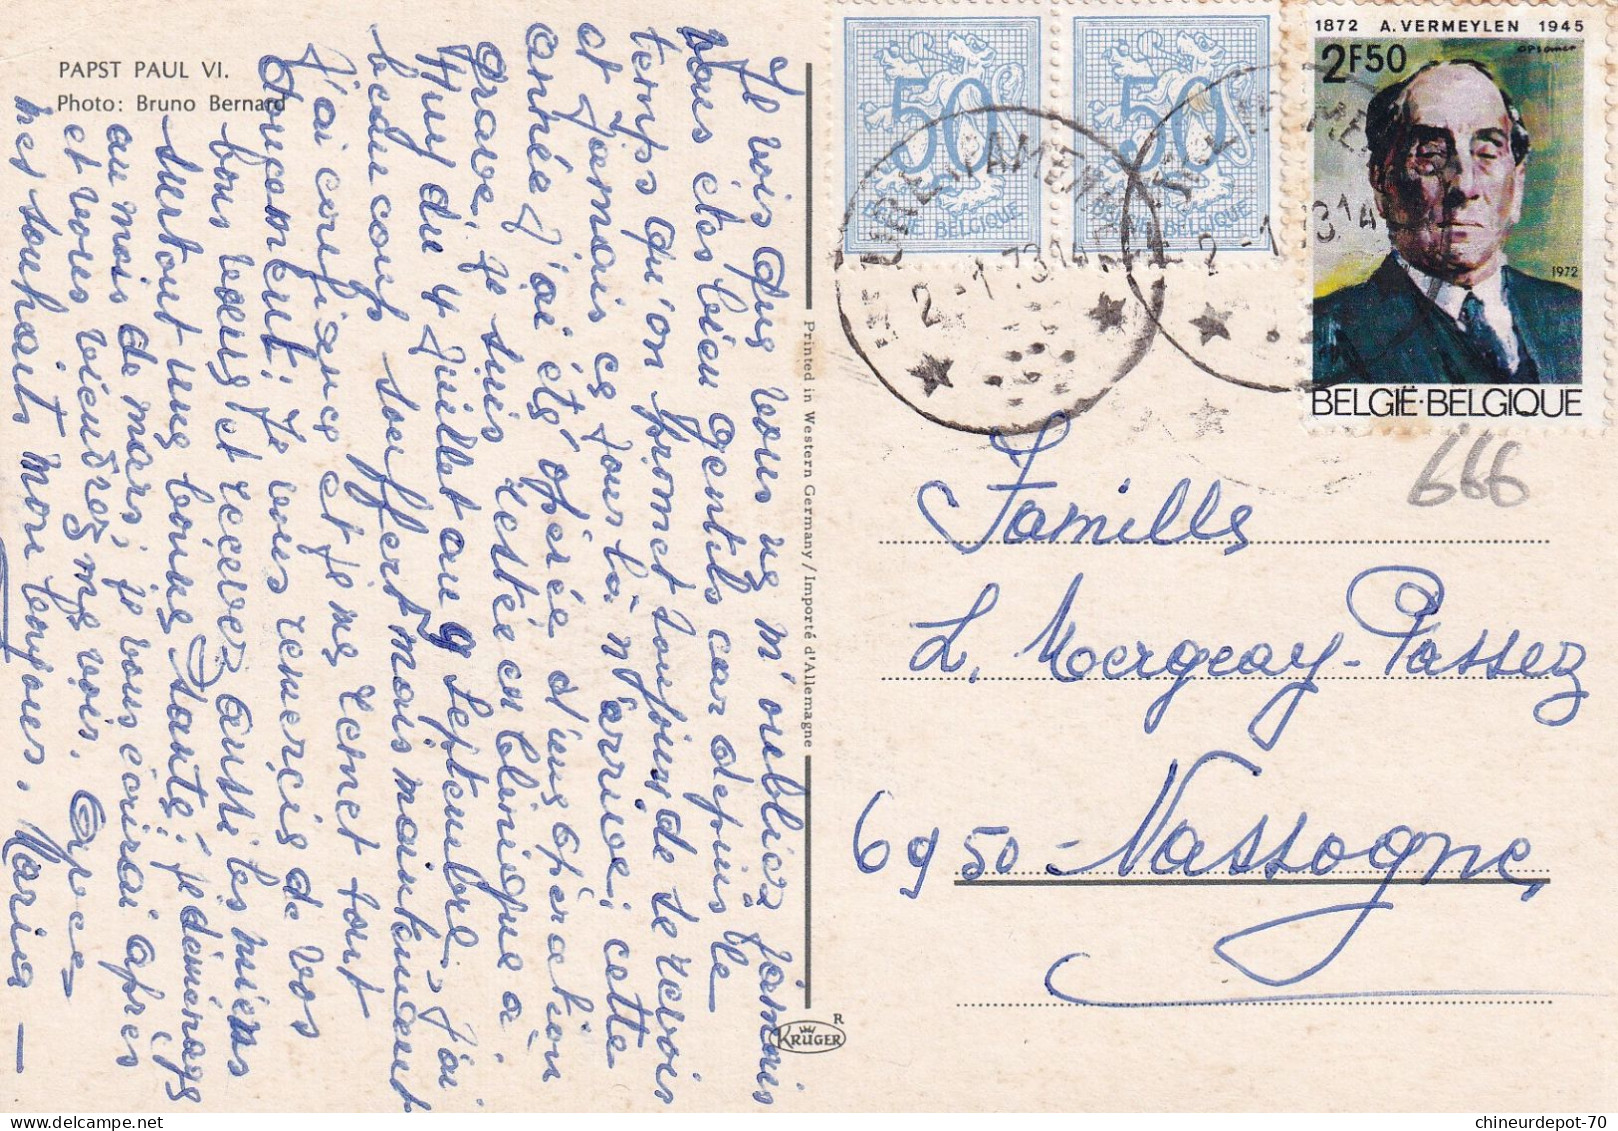 PAPST PAUL VI.
Photo: Bruno Bernard
Je vois que vous ne m'oubliez jamais
vous êtes bien gentils car depuis le
temps qu'on promet toujours de se revoir
et jamais ce jour là n'arrive; cette
année j'ai été opérée d'une opération
grave, je suis restée en clinique à
Huy du 4 Juillet au 9 Septembre. J'ai
beaucoup souffert mais maintenant
j'ai confiance et je me remet tout
doucement; Je vous remercie de vos
bons voeux et recevez aussi les miens
surtout une bonne Santé; je déménage
au mois de mars; je vous écrirai après
et vous viendrez me voir.
mes souhaits mon bonjour. Maria —
Printed in Western Germany / Importé d'Allemagne
KRÜGER
R
50
BELGIE BELGIQUE
50
BELGIE BELGIQUE
1872 A. VERMEYLEN 1945
2F50
1972
BELGIË·BELGIQUE
2-1-73 14
2-1 73 14
666
Famille
L. Mergeay-Passez
6950-Nassogne
chineurdepot-70